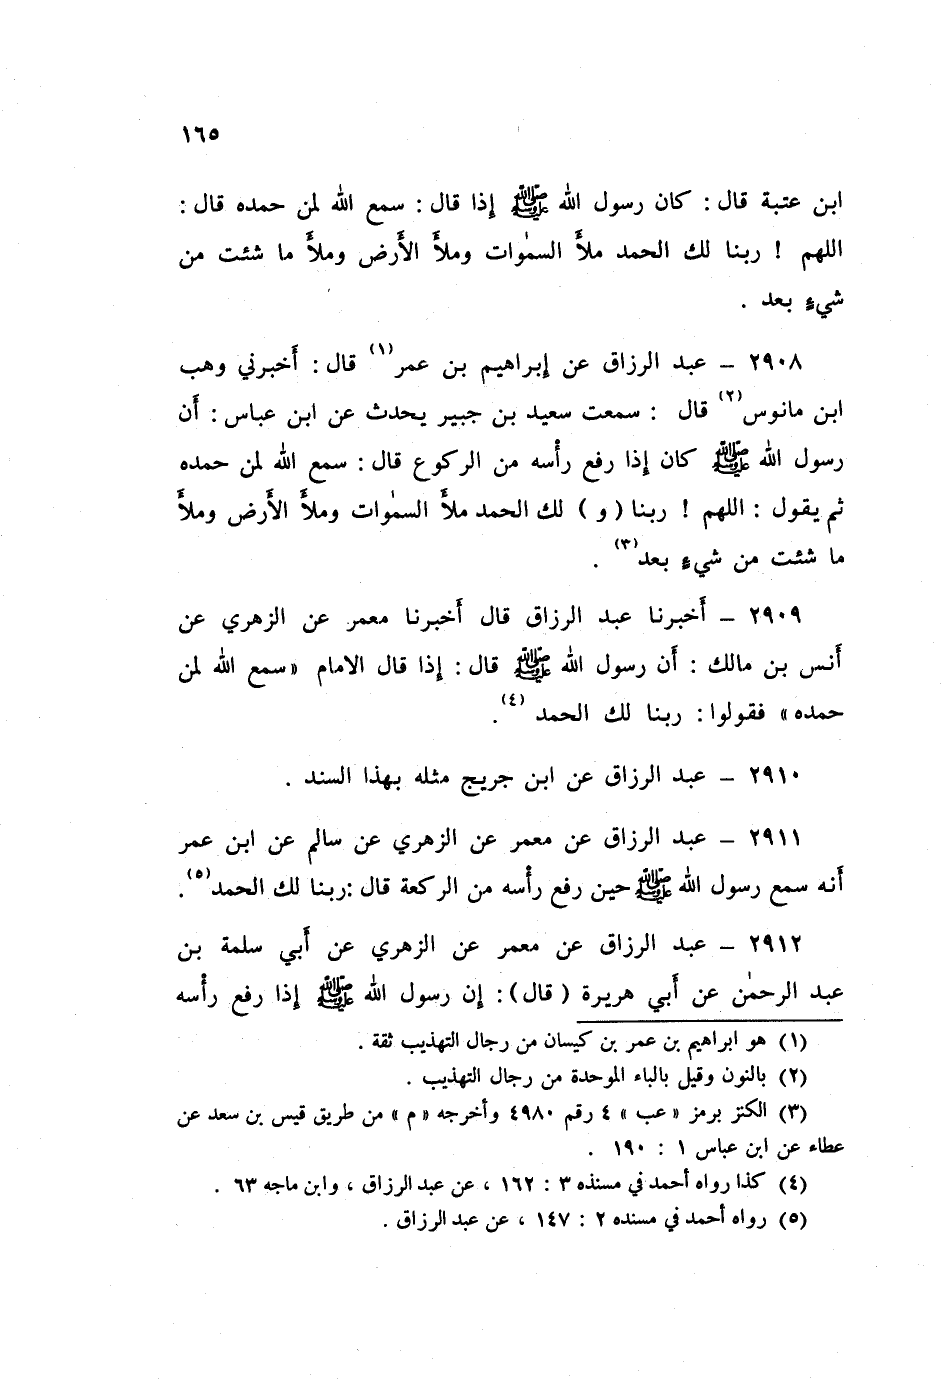 ١٦٥
ابن عتبة قال : كان رسول الله ﷺ إذا قال : سمع الله لمن حمده قال :
اللهم ! ربنا لك الحمد ملأَ السمٰوات وملأَ الأَرض وملأَ ما شئت من
شيءٍ بعد .
٢٩٠٨ – عبد الرزاق عن إبراهيم بن عمر(١) قال : أَخبرني وهب
ابن مانوس(٢) قال : سمعت سعيد بن جبير يحدث عن ابن عباس : أَن
رسول الله ﷺ كان إذا رفع رأْسه من الركوع قال : سمع الله لمن حمده
ثم يقول : اللهم ! ربنا ( و ) لك الحمد ملأَ السمٰوات وملأَ الأَرض وملأَ
ما شئت من شيءٍ بعد(٣) .
٢٩٠٩ – أَخبرنا عبد الرزاق قال أَخبرنا معمر عن الزهري عن
أَنس بن مالك : أَن رسول الله ﷺ قال : إذا قال الامام «سمع الله لمن
حمده» فقولوا : ربنا لك الحمد (٤).
٢٩١٠ – عبد الرزاق عن ابن جريج مثله بهذا السند .
٢٩١١ – عبد الرزاق عن معمر عن الزهري عن سالم عن ابن عمر
أَنه سمع رسول الله ﷺ حين رفع رأْسه من الركعة قال :ربنا لك الحمد(٥).
٢٩١٢ – عبد الرزاق عن معمر عن الزهري عن أَبي سلمة بن
عبد الرحمٰن عن أَبي هريرة ( قال) : إن رسول الله ﷺ إذا رفع رأْسه
(١) هو ابراهيم بن عمر بن كيسان من رجال التهذيب ثقة .
(٢) بالنون وقيل بالباء الموحدة من رجال التهذيب .
(٣) الكنز برمز «عب» ٤ رقم ٤٩٨٠ وأخرجه «م» من طريق قيس بن سعد عن
عطاء عن ابن عباس ١ : ١٩٠ .
(٤) كذا رواه أحمد في مسنده ٣ : ١٦٢ ، عن عبد الرزاق ، وابن ماجه ٦٣ .
(٥) رواه أحمد في مسنده ٢ : ١٤٧ ، عن عبد الرزاق .